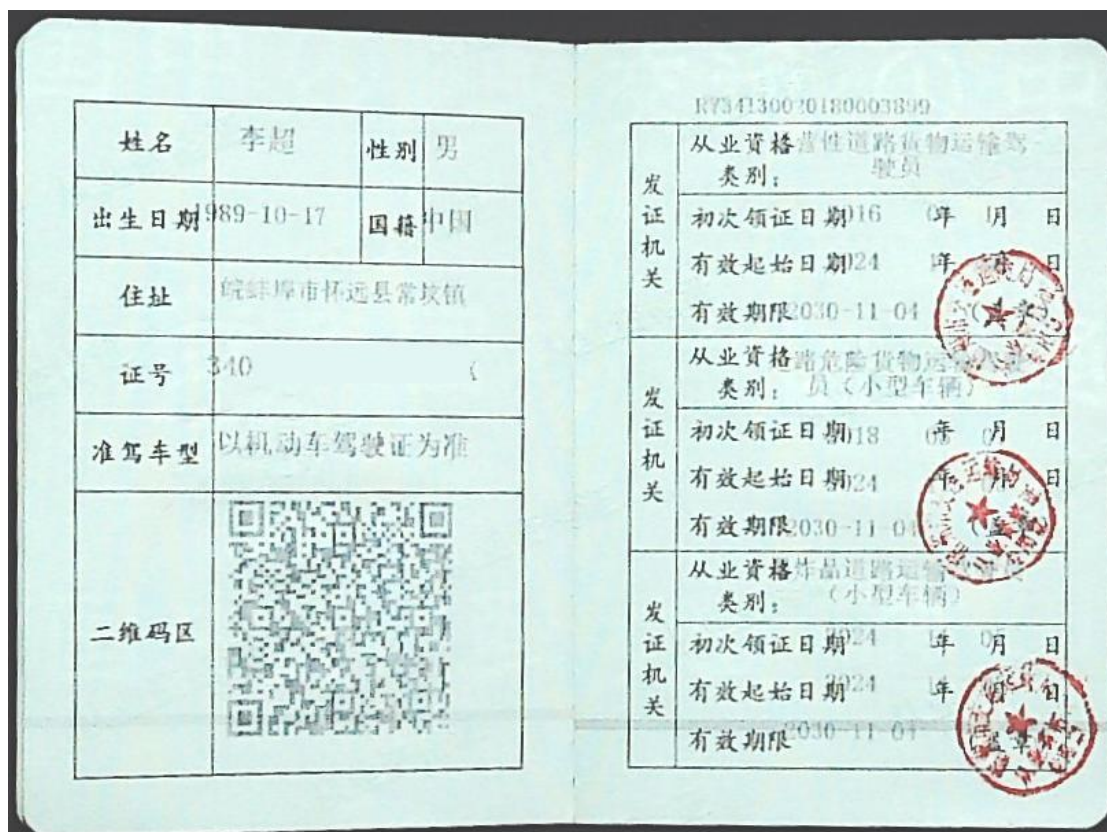 姓名 李超 性别 男
出生日期 1989-10-17 国籍 中国
住址 皖蚌埠市怀远县常坟镇
证号 340
准驾车型 以机动车驾驶证为准
二维码区
R734130020180003899
发证机关
从业资格 营性道路货物运输驾
类别： 驶员
初次领证日期 2016 年 月 日
有效起始日期 2024 年 月 日
有效期限 2030-11-04 （盖章）
发证机关
从业资格 路危险货物运输
类别： 员（小型车辆）
初次领证日期 2018 年 月 日
有效起始日期 2024 年 月 日
有效期限 2030-11-04 （盖章）
发证机关
从业资格 炸品道路运输
类别： （小型车辆）
初次领证日期 2024 年 月 日
有效起始日期 2024 年 月 日
有效期限 2030-11-04 盖章